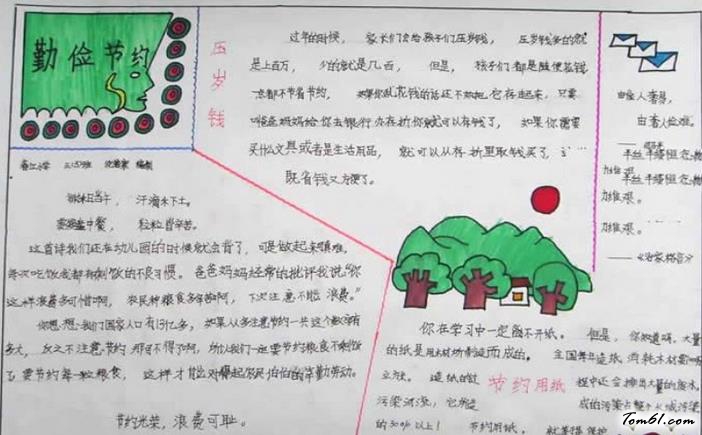 勤俭节约
压岁钱
过年的时候，家长们会给孩子们压岁钱，压岁钱多的
是上百万，少的就是几百，但是，孩子们都是随便花钱
一点都不节省节约，如果你乱花钱的话还不如把它存起来，只要
爸爸妈妈给你去银行办存折你就可以存钱了，如果你需要
买什么文具或者是生活用品，就可以从存折里取钱买了，
既省钱又方便了。
由俭入奢易，
由奢入俭难。
半丝半缕恒念物
力维艰。
半丝半缕恒念物
力维艰。
——《治家格言》
锄禾日当午，汗滴禾下土。
谁知盘中餐，粒粒皆辛苦。
这首诗我们还在幼儿园的时候就会背了，可是做起来真难，
每次吃饭我都有剩饭的不良习惯。爸爸妈妈经常的批评我说“你
这样浪费多可惜啊，农民种粮食多辛苦啊，下次注意不能浪费。”
你想想我们国家人口有13亿多，如果人多注意节约一共这个数字有
多大，反之不注意节约那可不得了啊，所以我们一定要节约粮食不剩饭
要节约每一粒粮食，这样才能对得起农民伯伯的辛勤劳动。
节约光荣，浪费可耻。
节约用纸
你在学习中一定离不开纸。但是，你知道吗，大量
的纸是用木材所制造而成的。全国每年造纸消耗木材
立方米。造纸的过程中还会排出大量的废水，
污染河流，它所造成的污染占整个水域污染
的30%以上！节约用纸，就等于保护
Tom61.com